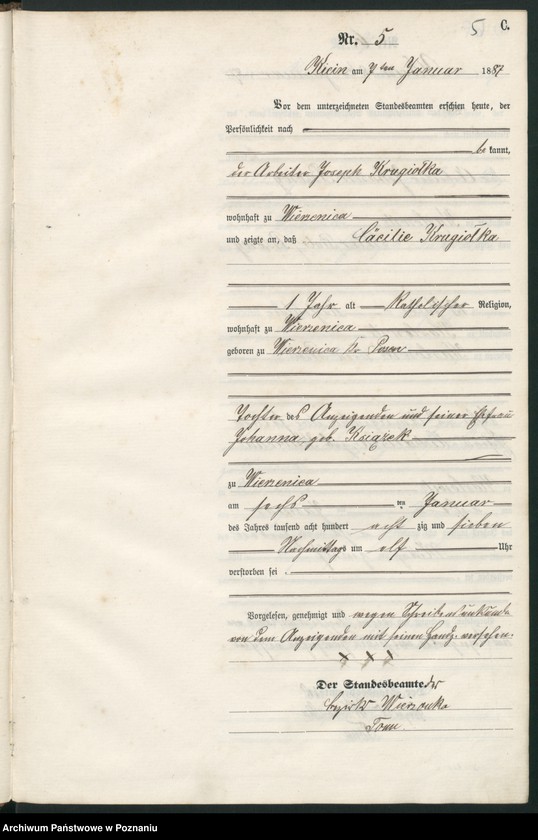 5 C.
Nr. 5
Kicin am 7ten Januar 1887
Vor dem unterzeichneten Standesbeamten erschien heute, der
Persönlichkeit nach
be kannt,
der Arbeiter Joseph Krugiołka
wohnhaft zu Wierzenica
und zeigte an, daß Cäcilie Krugiołka
1 Jahr alt Katholischer Religion,
wohnhaft zu Wierzenica
geboren zu Wierzenica Kr. Posen
Tochter des Anzeigenden und seiner Ehefrau
Johanna, geb. Książek
zu Wierzenica
am sechs ten Januar
des Jahres tausend acht hundert acht zig und sieben
Nachmittags um elf Uhr
verstorben sei.
Vorgelesen, genehmigt und wegen Schreibensunkunde
von dem Anzeigenden mit seinen Handz. versehen.
+ + +
Der Standesbeamte der
Bezirks Wierzonka
Archiwum Państwowe w Poznaniu